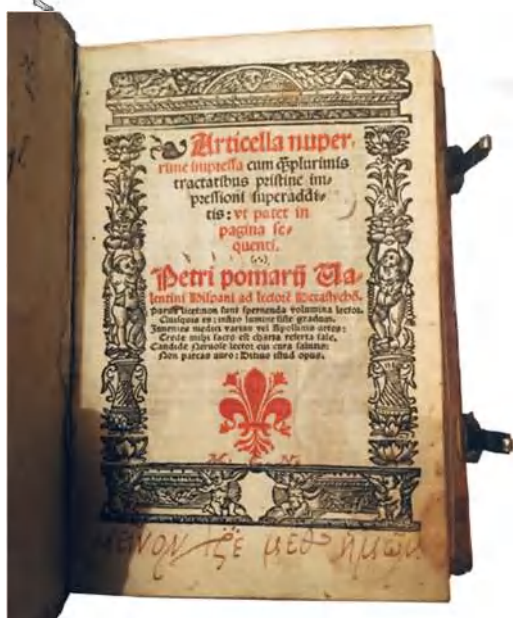 Articella nuper⸗
rime impressa cum q̃plurimis
tractatibus pristine im⸗
pressioni superaddi⸗
tis: vt patet in
pagina se⸗
quenti.
Petri pomarij Ua⸗
lentini Hispani ad lectorẽ Hexastychõ.
Parua licet non sunt spernenda volumina lector.
Quisquis es: intro lumine siste gradum.
Inuenies medici varias vel Apollinis artes:
Crede mihi sacro est charta referta sale.
Candide lector cui cura salutis:
Non parcas auro: Ditius istud opus.
μεῖνον μεθ ἡμῶν